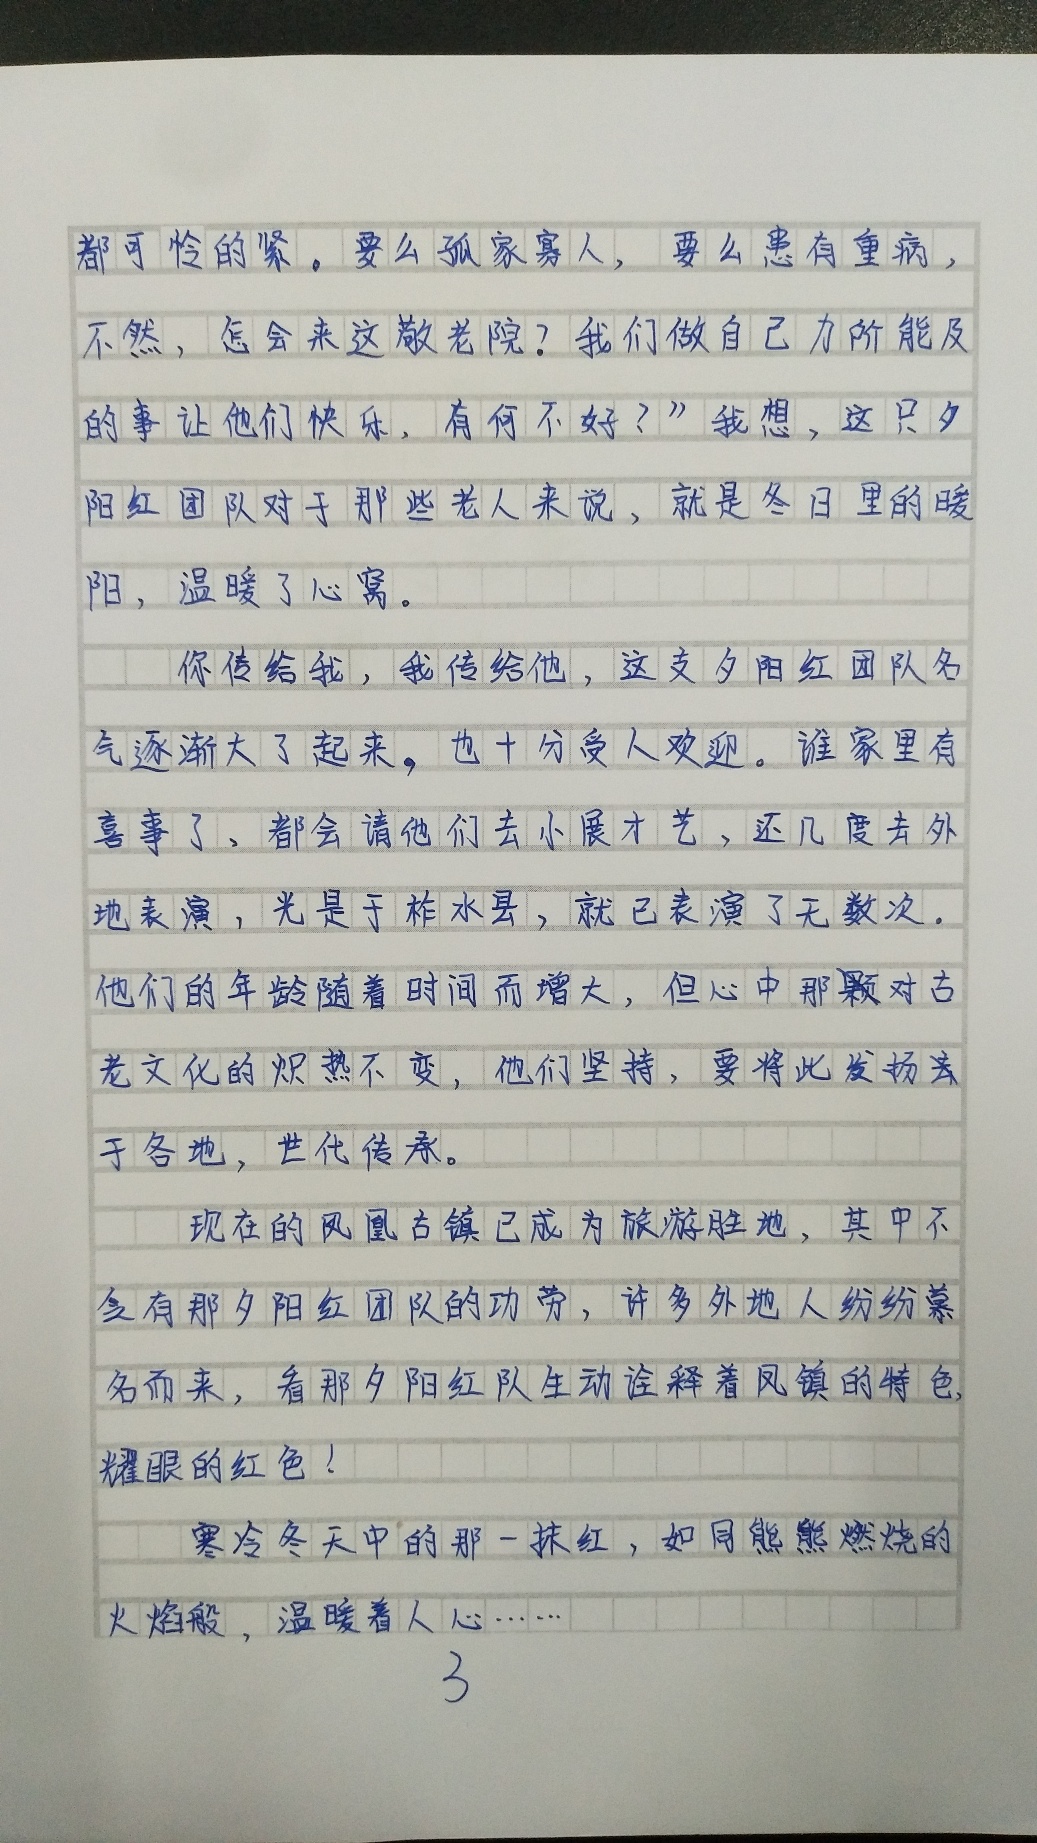 都可怜的紧。要么孤家寡人，要么患有重病，
不然，怎会来这敬老院？我们做自己力所能及
的事让他们快乐，有何不好？”我想，这只夕
阳红团队对于那些老人来说，就是冬日里的暖
阳，温暖了心窝。
你传给我，我传给他，这支夕阳红团队名
气逐渐大了起来，也十分受人欢迎。谁家里有
喜事了、都会请他们去小展才艺，还几度去外
地表演，光是于柞水县，就已表演了无数次。
他们的年龄随着时间而增大，但心中那颗对古
老文化的炽热不变，他们坚持，要将此发扬去
于各地，世代传承。
现在的凤凰古镇已成为旅游胜地，其中不
乏有那夕阳红团队的功劳，许多外地人纷纷慕
名而来，看那夕阳红队生动诠释着凤镇的特色，
耀眼的红色！
寒冷冬天中的那一抹红，如同熊熊燃烧的
火焰般，温暖着人心……
3